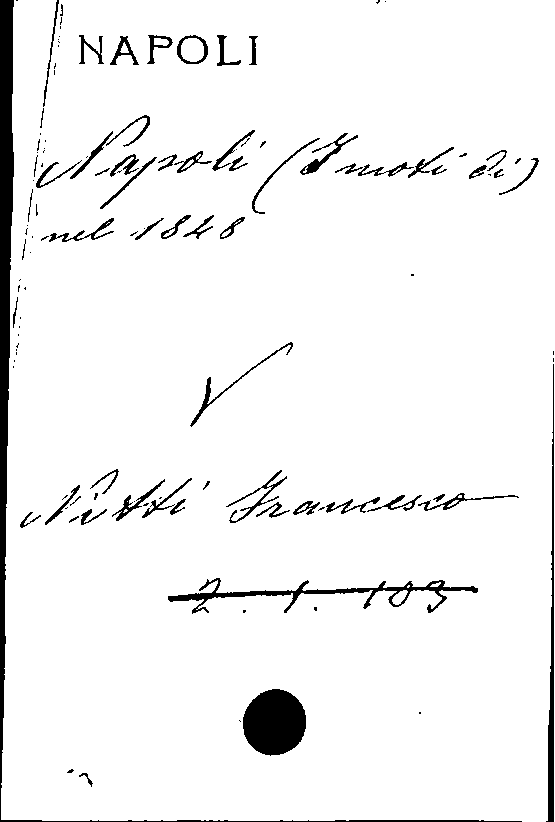 NAPOLI
Napoli (I moti di)
nel 1848
V
Nitti Francesco
2. 1. 103